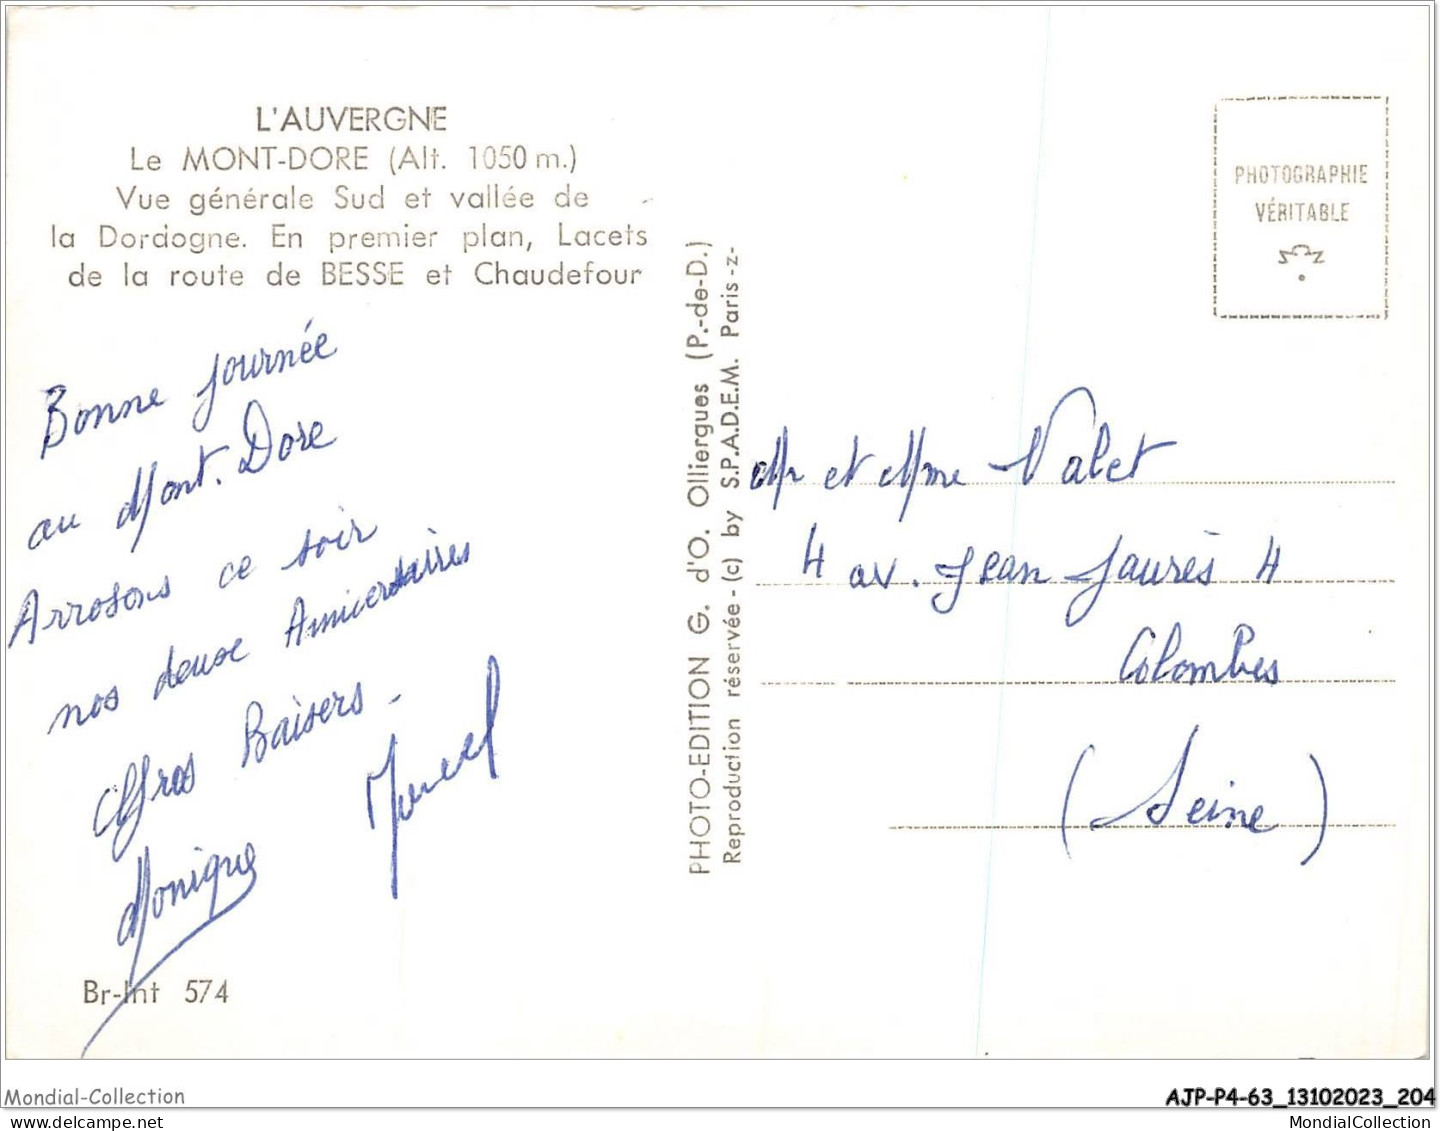 L'AUVERGNE
Le MONT-DORE (Alt. 1050 m.)
Vue générale Sud et vallée de
la Dordogne. En premier plan, Lacets
de la route de BESSE et Chaudefour
Bonne journée
au Mont. Dore
Arrosons ce soir
nos deux Anniversaires
Gros Baisers -
Monique
Br-Int 574
PHOTO-EDITION G. d'O. Olliergues (P.-de-D.)
Reproduction réservée - (c) by S.P.A.D.E.M. Paris -z-
PHOTOGRAPHIE
VÉRITABLE
Mr et Mme Valet
4 av. Jean Jaurès 4
Colombes
(Seine)
Mondial-Collection
delcampe.net
AJP-P4-63_13102023_204
MondialCollection